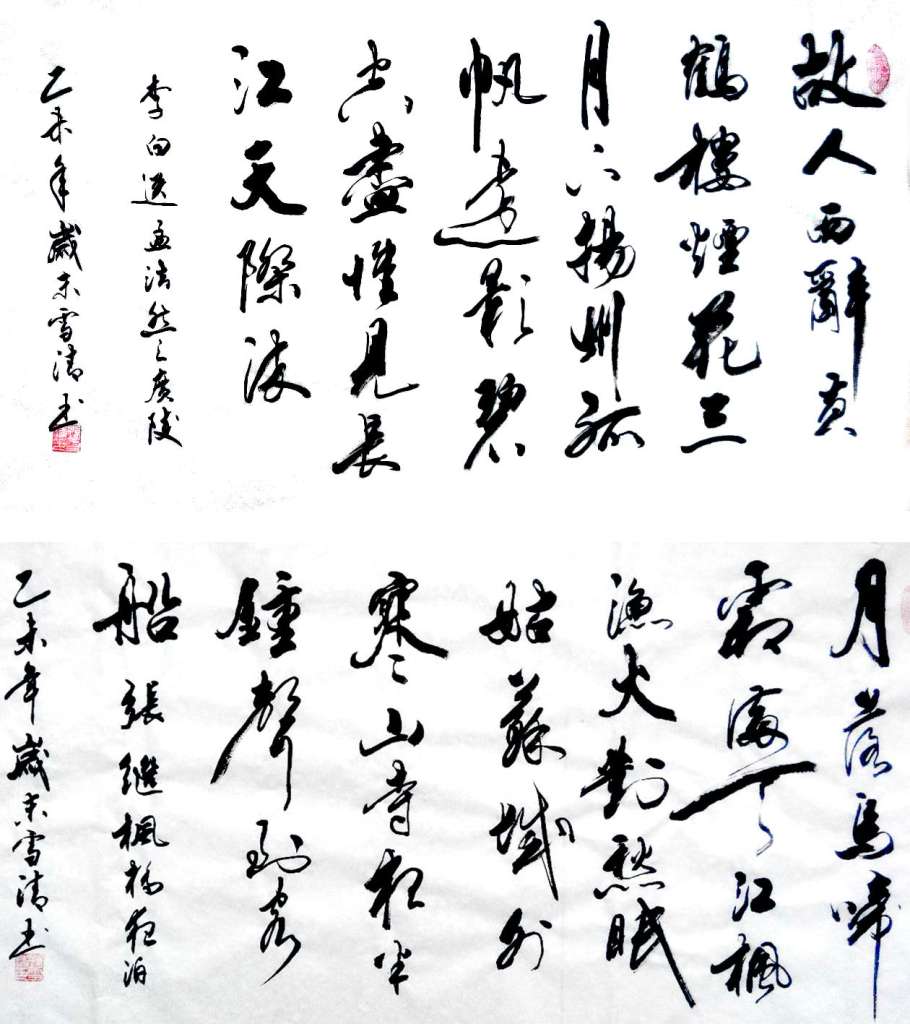 故人西辭黃
鶴樓煙花三
月下揚州孤
帆遠影碧
空盡惟見長
江天際流
李白送孟浩然之廣陵
乙未年歲末雪清书
月落烏啼
霜滿天江楓
漁火對愁眠
姑蘇城外
寒山寺夜半
鍾聲到客
船 張繼楓橋夜泊
乙未年歲末雪清书